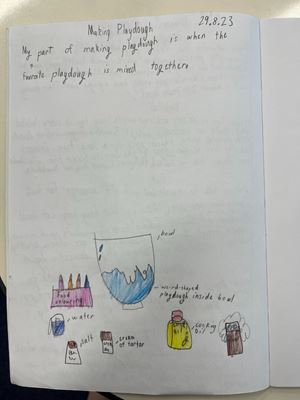 Making Playdough
29.8.23
My part of making playdough is when the
favorite playdough is mixed together.
bowl
weird-shaped
playdough inside bowl
Food
colouring
water
salt
cream
of tartar
cooking
oil